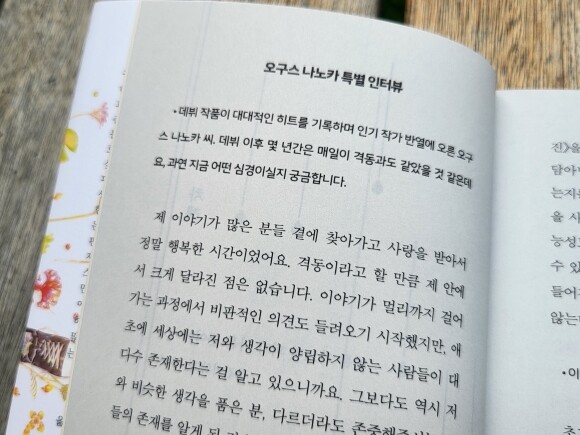 오구스 나노카 특별 인터뷰
• 데뷔 작품이 대대적인 히트를 기록하며 인기 작가 반열에 오른 오구
스 나노카 씨. 데뷔 이후 몇 년간은 매일이 격동과도 같았을 것 같은데
요, 과연 지금 어떤 심경이실지 궁금합니다.
제 이야기가 많은 분들 곁에 찾아가고 사랑을 받아서
정말 행복한 시간이었어요. 격동이라고 할 만큼 제 안에
서 크게 달라진 점은 없습니다. 이야기가 멀리까지 걸어
가는 과정에서 비판적인 의견도 들려오기 시작했지만, 애
초에 세상에는 저와 생각이 양립하지 않는 사람들이 대
다수 존재한다는 걸 알고 있으니까요. 그보다도 역시 저
와 비슷한 생각을 품은 분, 다르더라도
들의 존재를 알게 된
진》을
담아
는지
을 사
능성
수 있
들어
않는
• 이
초